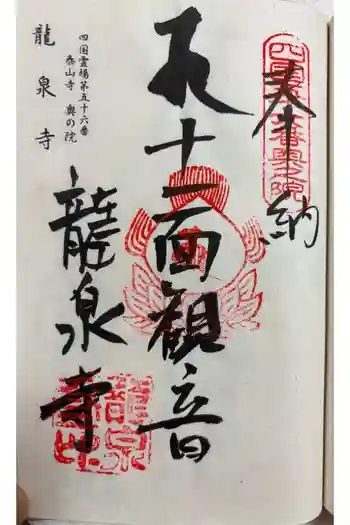 奉納
十一面観音
龍泉寺
四国霊場第五十六番
泰山寺 奥の院
龍泉寺
龍泉寺印